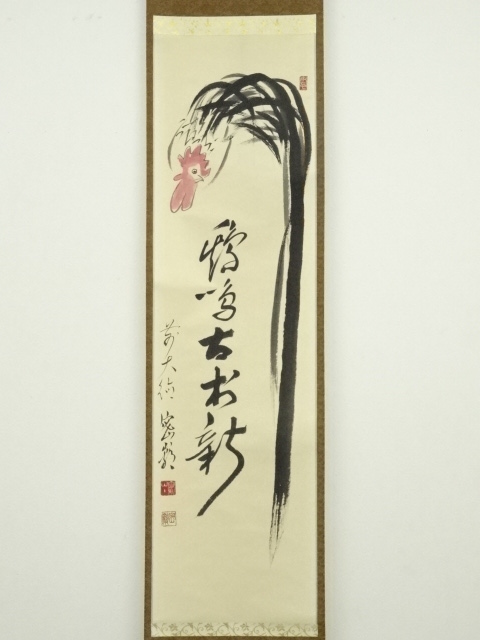 鶏鳴古木新
前大徳